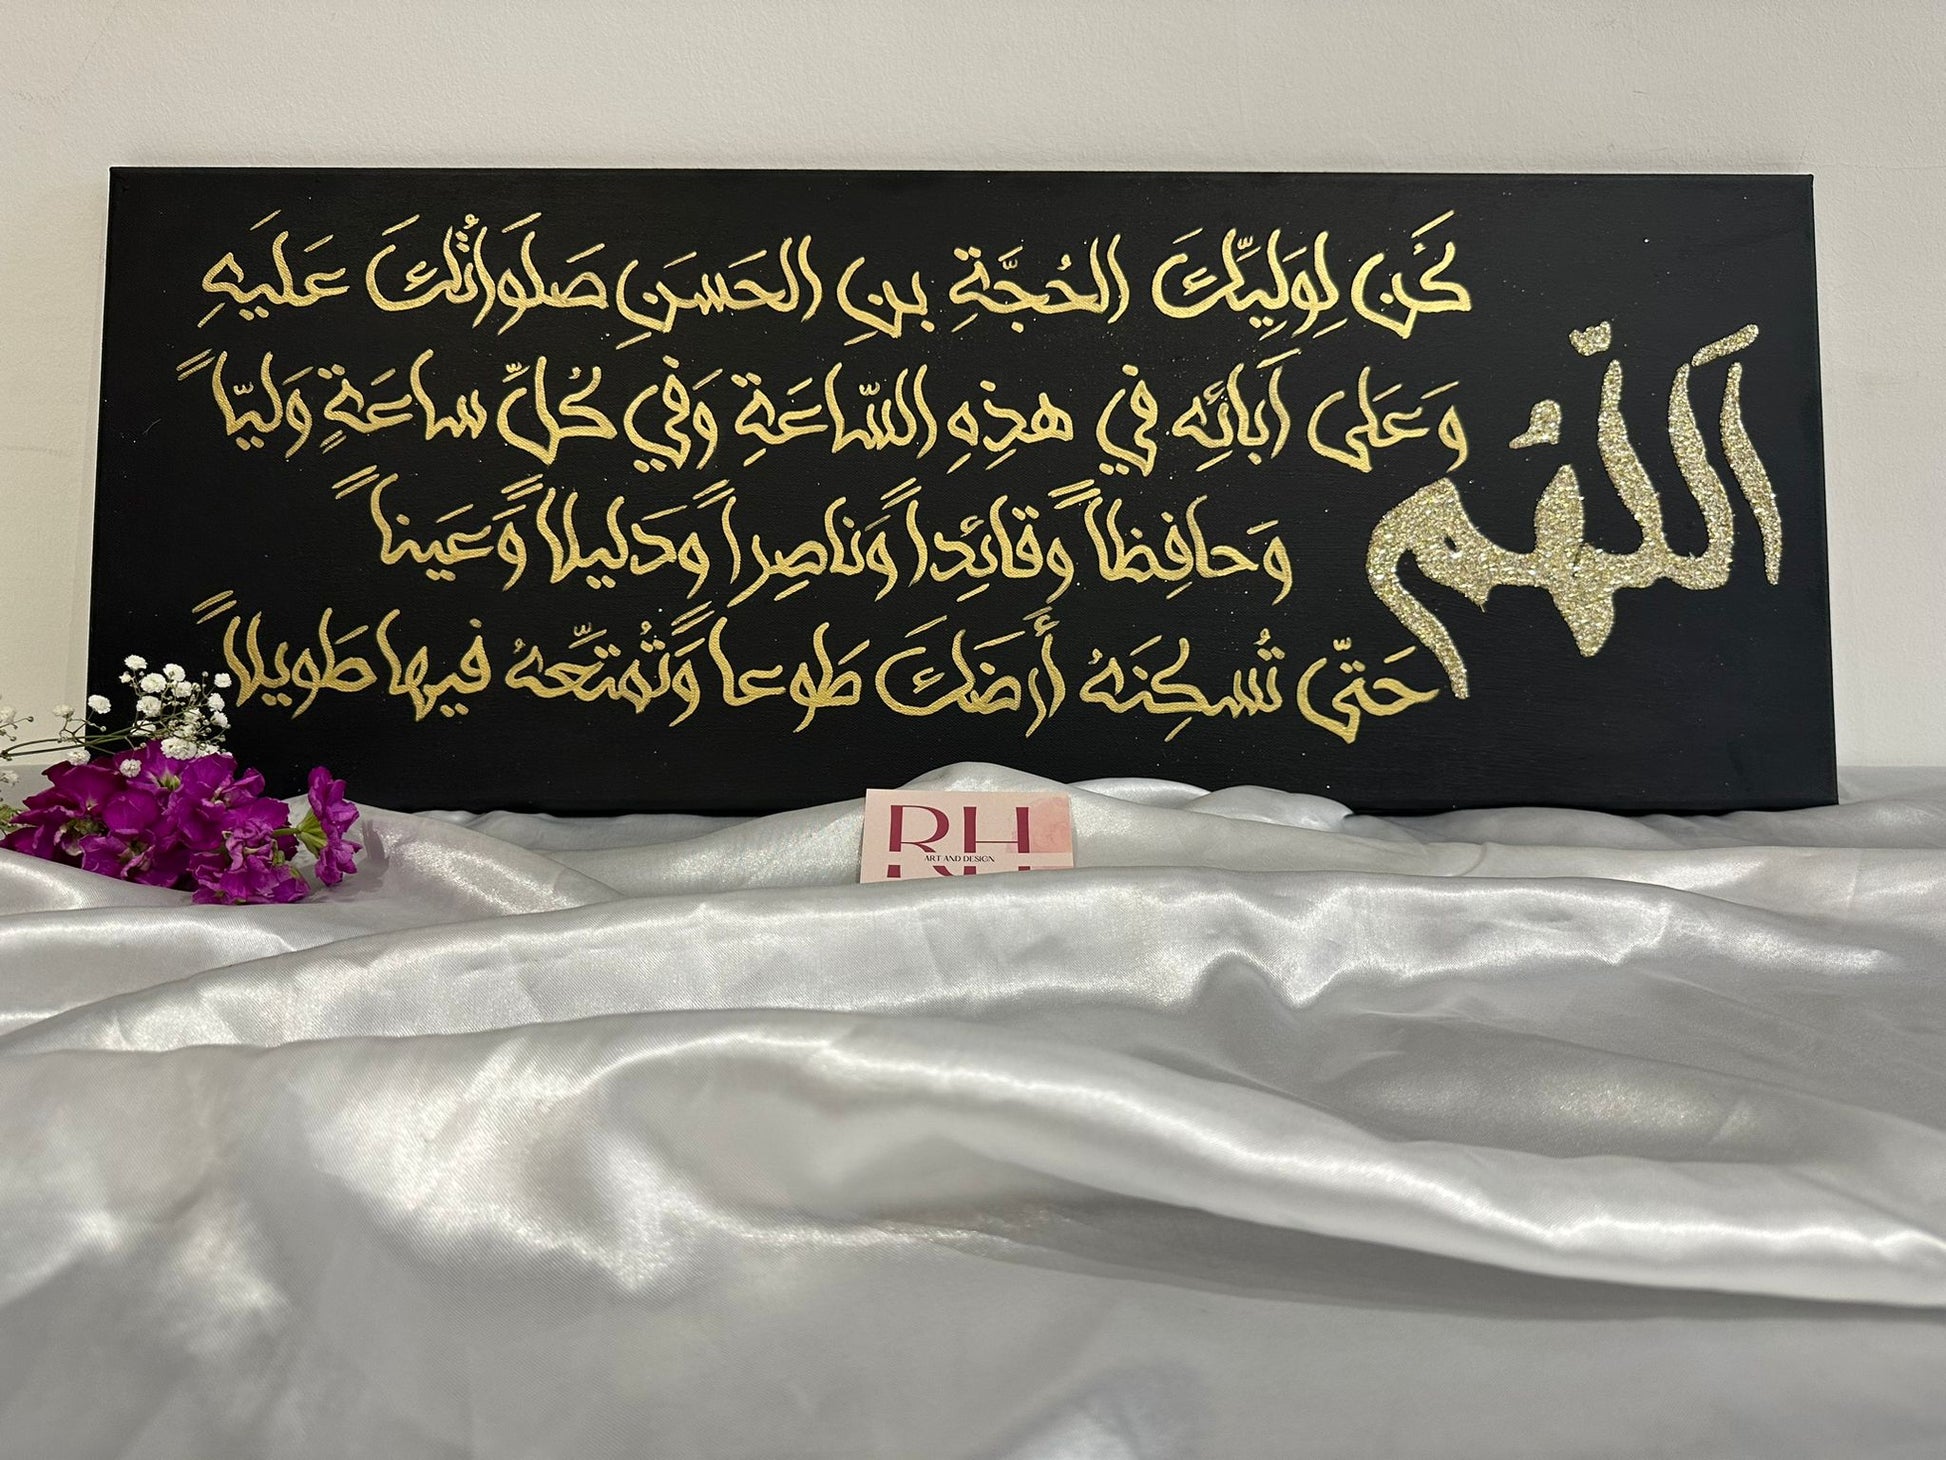 اَللّهُمَّ
كُن لِوَلِيِّكَ الحُجَّةِ بنِ الحَسَنِ صَلَواتُكَ عَلَيهِ
وَعَلى آبائِهِ في هذِهِ السّاعَةِ وَفي كُلِّ ساعَةٍ وَليّاً
وَحافِظاً وَقائِداً وَناصِراً وَدَليلاً وَعَيناً
حَتّى تُسكِنَهُ أَرضَكَ طَوعاً وَتُمَتِّعَهُ فيها طَويلاً
RH
ART AND DESIGN